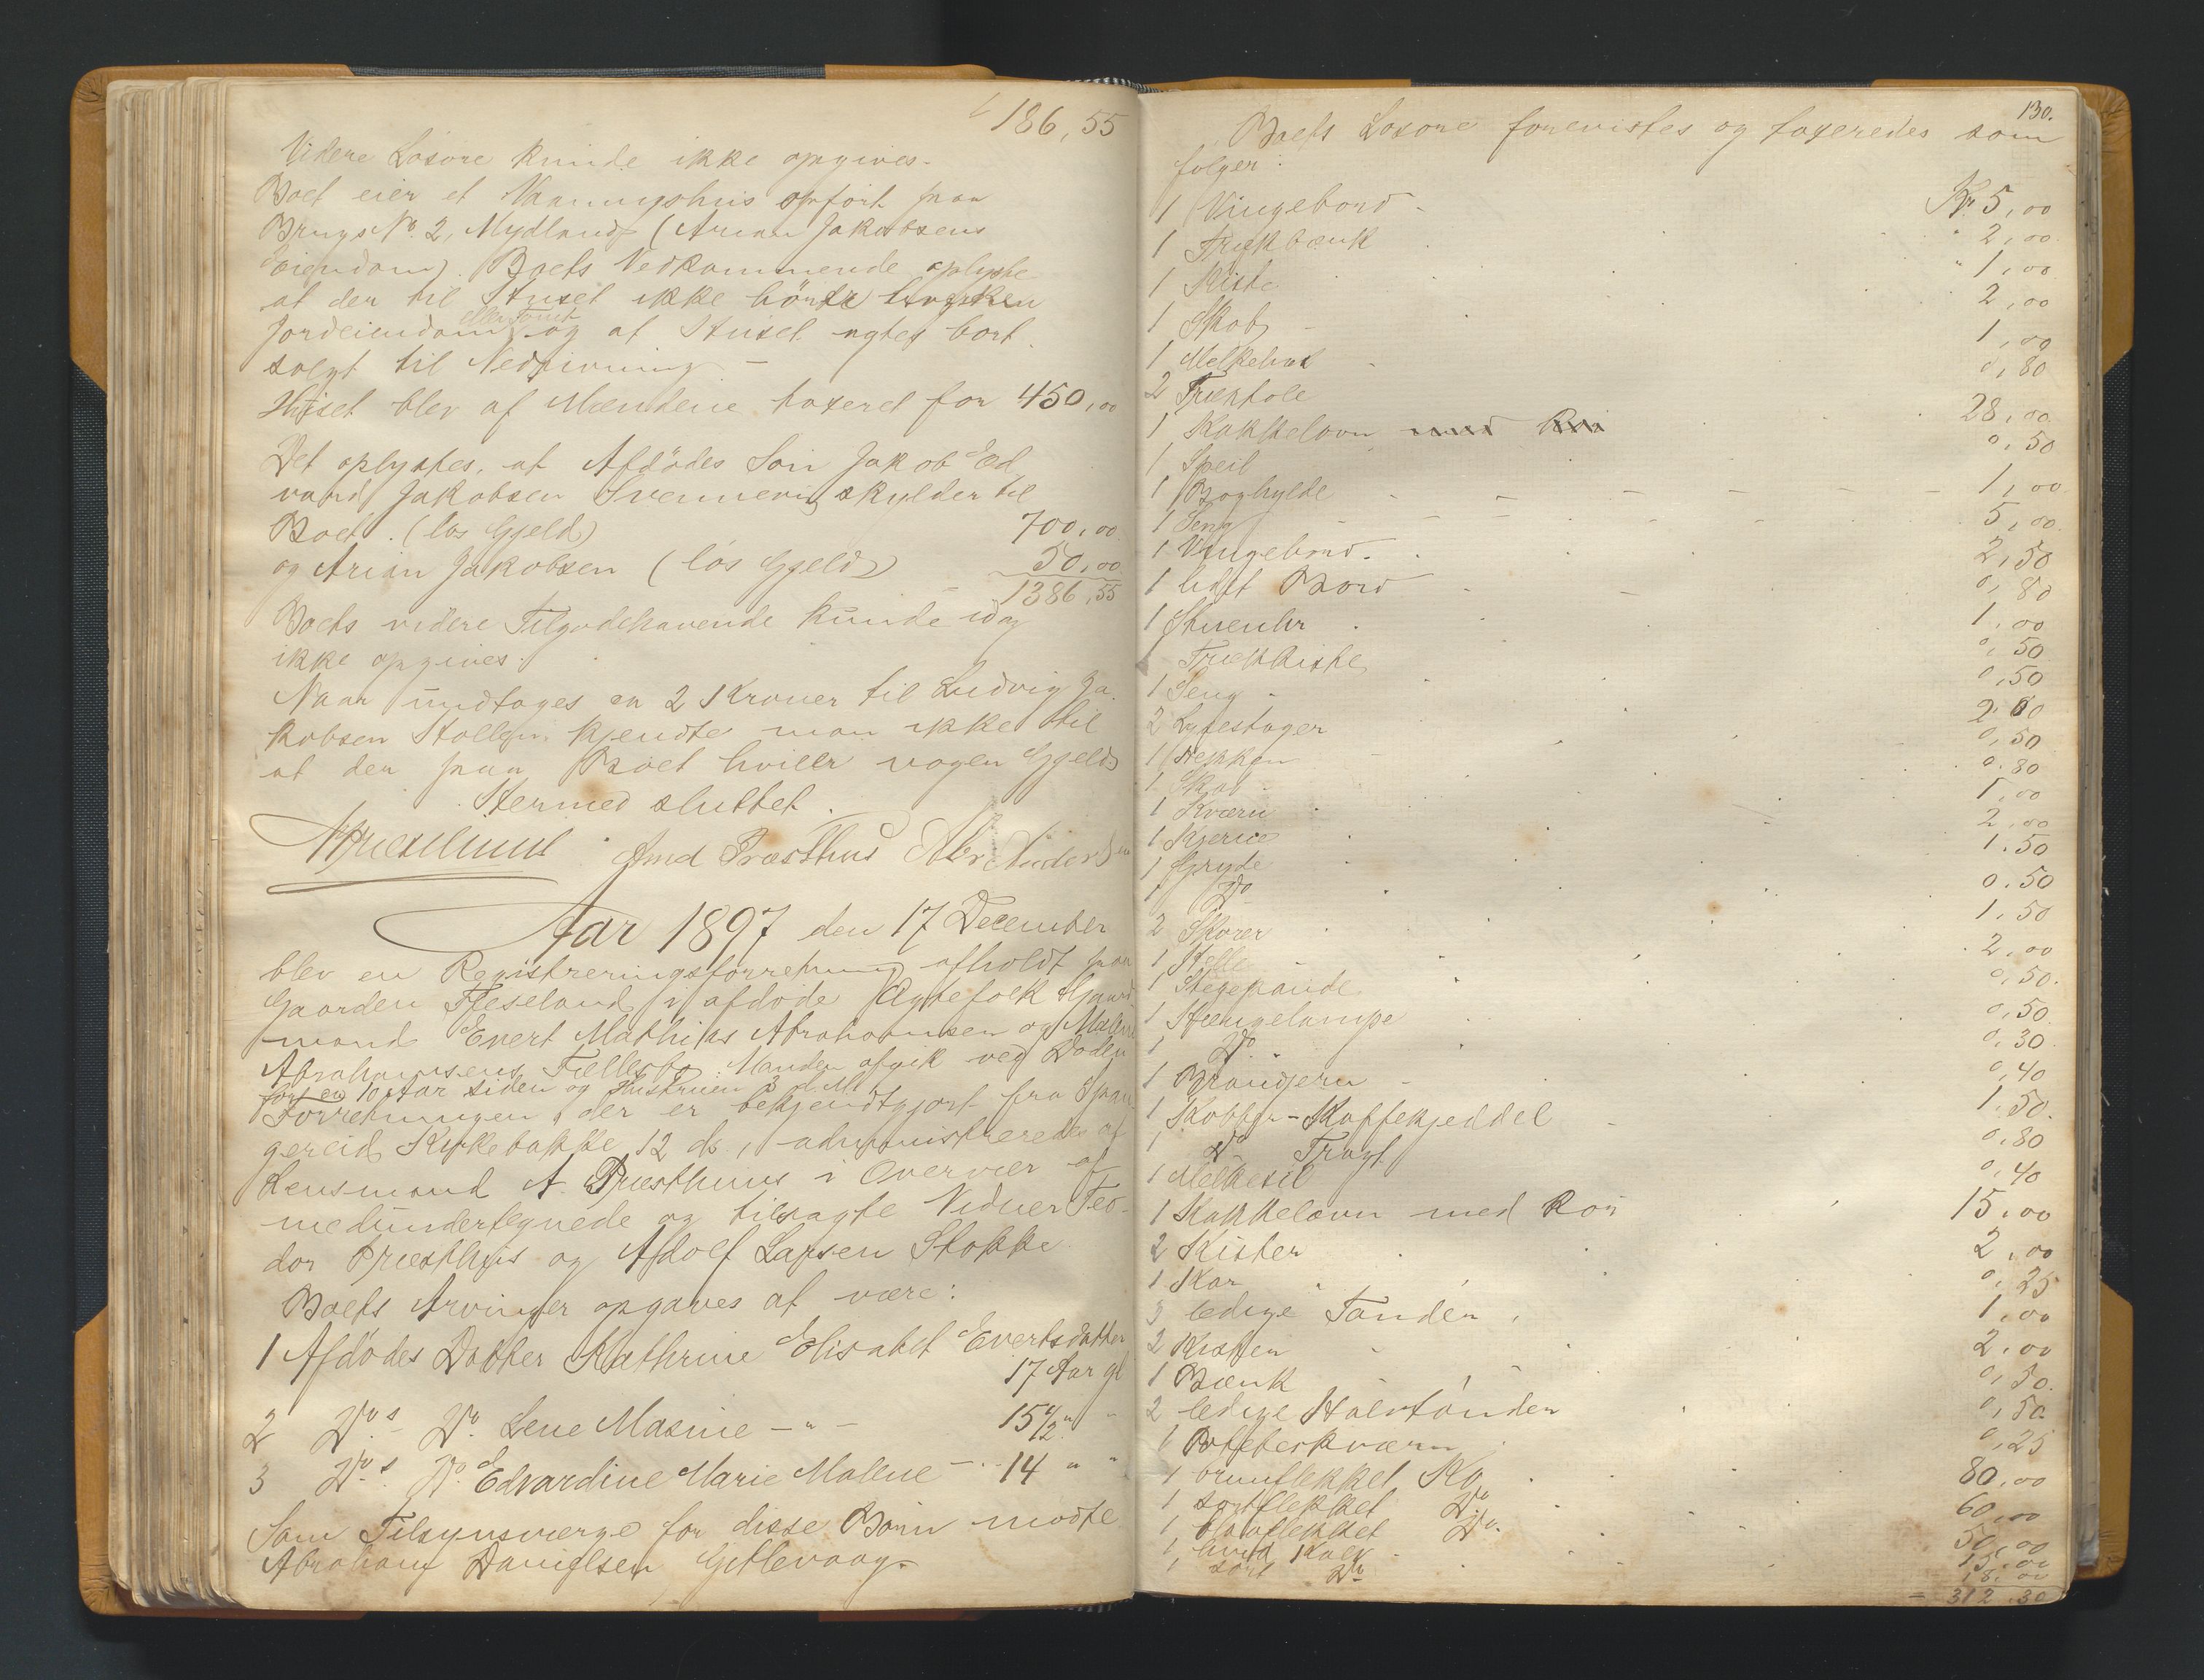 186,55
Videre Løsøre kunde ikke opgives.
Boet eier et Vaaningshus opført paa
Brugs No. 2, Mydland (Arian Jakobsens
Eiendom). Boets Vedkommende oplyste
at der til Huset ikke hörte hverken
eller Tomt
Jordeiendom og at Huset agtes bort
solgt til Nedrivning —
Huset blev af Mændene taxeret for 450,00
Det oplystes, at Afdödes Sön Jakob Ed
vard Jakobsen Svennevig skylder til
Boet. (lös Gjeld) 700,00
og Arian Jakobsen (lös Gjeld) 50,00
1386,55
Boets videre Tilgodehavende kunde idag
ikke opgives.
Naar undtages en 2 Kroner til Ludvig Ja
kobsen kjendte man ikke til
at der paa Boet hviler nogen Gjeld
Hermed sluttet.
APræsthuus Amd Præsthus Abr. Anders
Aar 1897 den 17 December
blev en Registreringsforretning afholdt paa
Gaarden Fjeseland i afdøde Ægtefolk Gaard
mand Evert Mathias Abrahamsen og Malene
Abrahamsens Fællesbo. Manden afgik ved Døden
for en 10 Aar siden og Hustruen 3 d. M.
Forretningen, der er bekjendtgjort fra Span
gereid Kirkebakke 12 ds, administreredes af
Lensmand A. Præsthuus i Overvær af
medundertegnede og tilsagte Vidner Teo-
dor Præsthus og Adolf Larsen Stokke.
Boets Arvinger opgaves at være:
1 Afdödes Datter Kathrine Elisabet Evertsdatter
17 Aar gl
2 Do s Do. Lene Masine — " — 15 1/2 " "
3 Do s. Do. Edvardine Marie Malene — 14 " "
Som Tilsynsværge for disse Börn mødte
Abraham Danielsen Gitlevaag.
130.
Boets Løsøre forevistes og taxeredes som
følger:
1 Vingebord Kr. 5,00
1 Trækbænk " 2,00
1 Kiste " 1,00
1 Skab 2,00
1 1,00
2 Træstole 0,80
1 Kakkelovn 28,00
1 Speil 0,50
1 Boghylde 1,00
1 Seng 5,00
1 Vingebord 2,50
1 lidet Bord 0,80
1 Stueuhr 1,00
Trækiste 0,50
1 Seng 0,50
2 Lysestager 2,00
1 0,50
1 Skab 0,80
1 Kværn 1,00
1 Kjerne 2,00
1 Gryde 1,50
1 Do 0,50
2 1,50
1 Helle 2,00
1 Stegepande 0,50
1 Hængelampe 0,50
1 Do. 0,30
1 Brandjern 0,40
1 Kobber-Kaffekjeddel 1,50
1 Do Tragt 0,80
1 Melkesil 0,40
1 Kakkelovn med Rör 15,00
2 Kister 2,00
1 Kar 0,25
3 ledige Tønder 1,00
2 2,00
1 Bænk 0,50
2 ledige Halvtønder 0,50
1 Poteteskværn 0,25
1 brunflekket Ko 80,00
1 sortflekket Do 60,00
1 blaaflekket Do. 50,00
1 hvid Kalv 15,00
1 sort Do 18,00
= 312,30